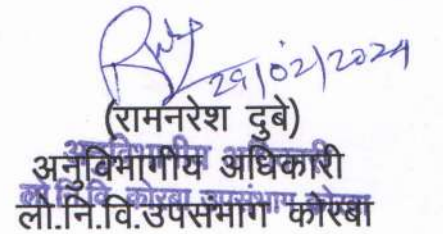 29/02/2024
(रामनरेश दुबे)
अनुविभागीय अधिकारी
लो.नि.वि.उपसंभाग कोरबा
अनुविभागीय अधिकारी
लो.नि.वि. कोरबा उपसंभाग कोरबा